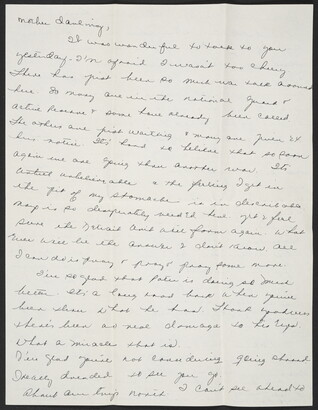 Mother Darling,
It was wonderful to talk to you
yesterday. I'm afraid I wasn't too cheery
There has just been so much war talk around
here. So many are in the National Guard &
active reserve & some have already been called
The others are just waiting & many are given 24
hrs notice. It's hard to believe that so soon
again we are going thru another war. It's
actual unbelievable & the feeling I get in
the pit of my stomache is indescribable
is so desperately needed here yet I feel
sure the again. What
ever will be the answer I don't know. All
I can do is pray & pray & pray some more.
I'm so glad that Peter is doing so much
better. It's a long road back when you've
been thru what he has. Thank goodness
there's been no real damage to his legs.
What a miracle that is.
I'm glad you're not considering going abroad
I really dreaded to see you go.
I can't see ahead to
about our trip north